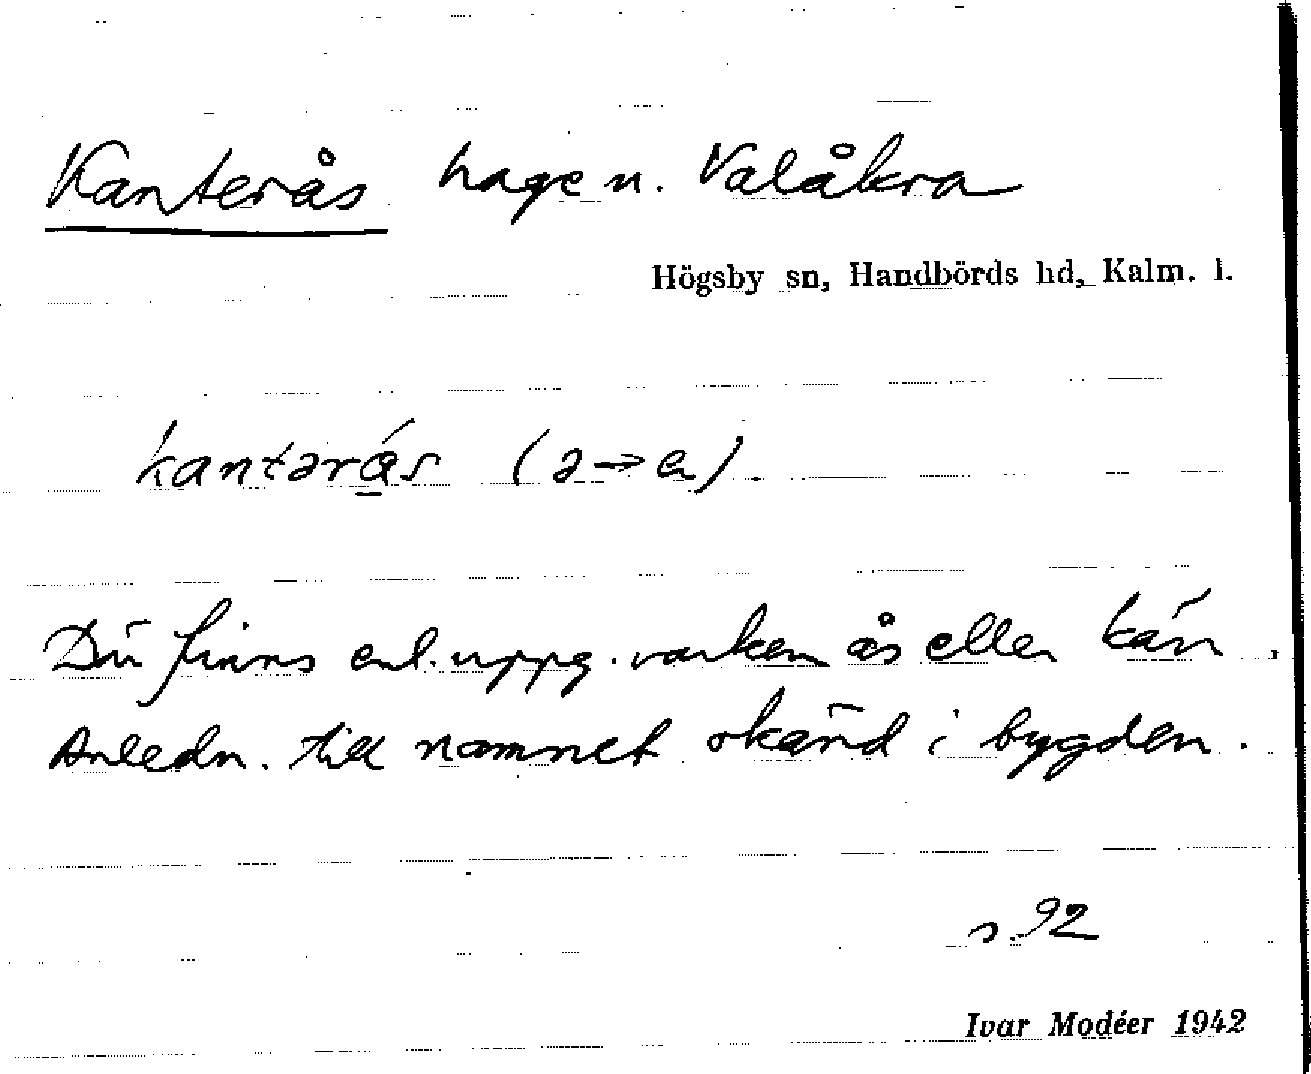 Kanterås hage u. Valåkra
Högsby sn, Handbörds hd, Kalm. l.
kantərås (ə→a).
Där finns enl. uppg. varken ås eller kärr.
Anledn. till namnet okänd i bygden.
s. 92
Ivar Modéer 1942